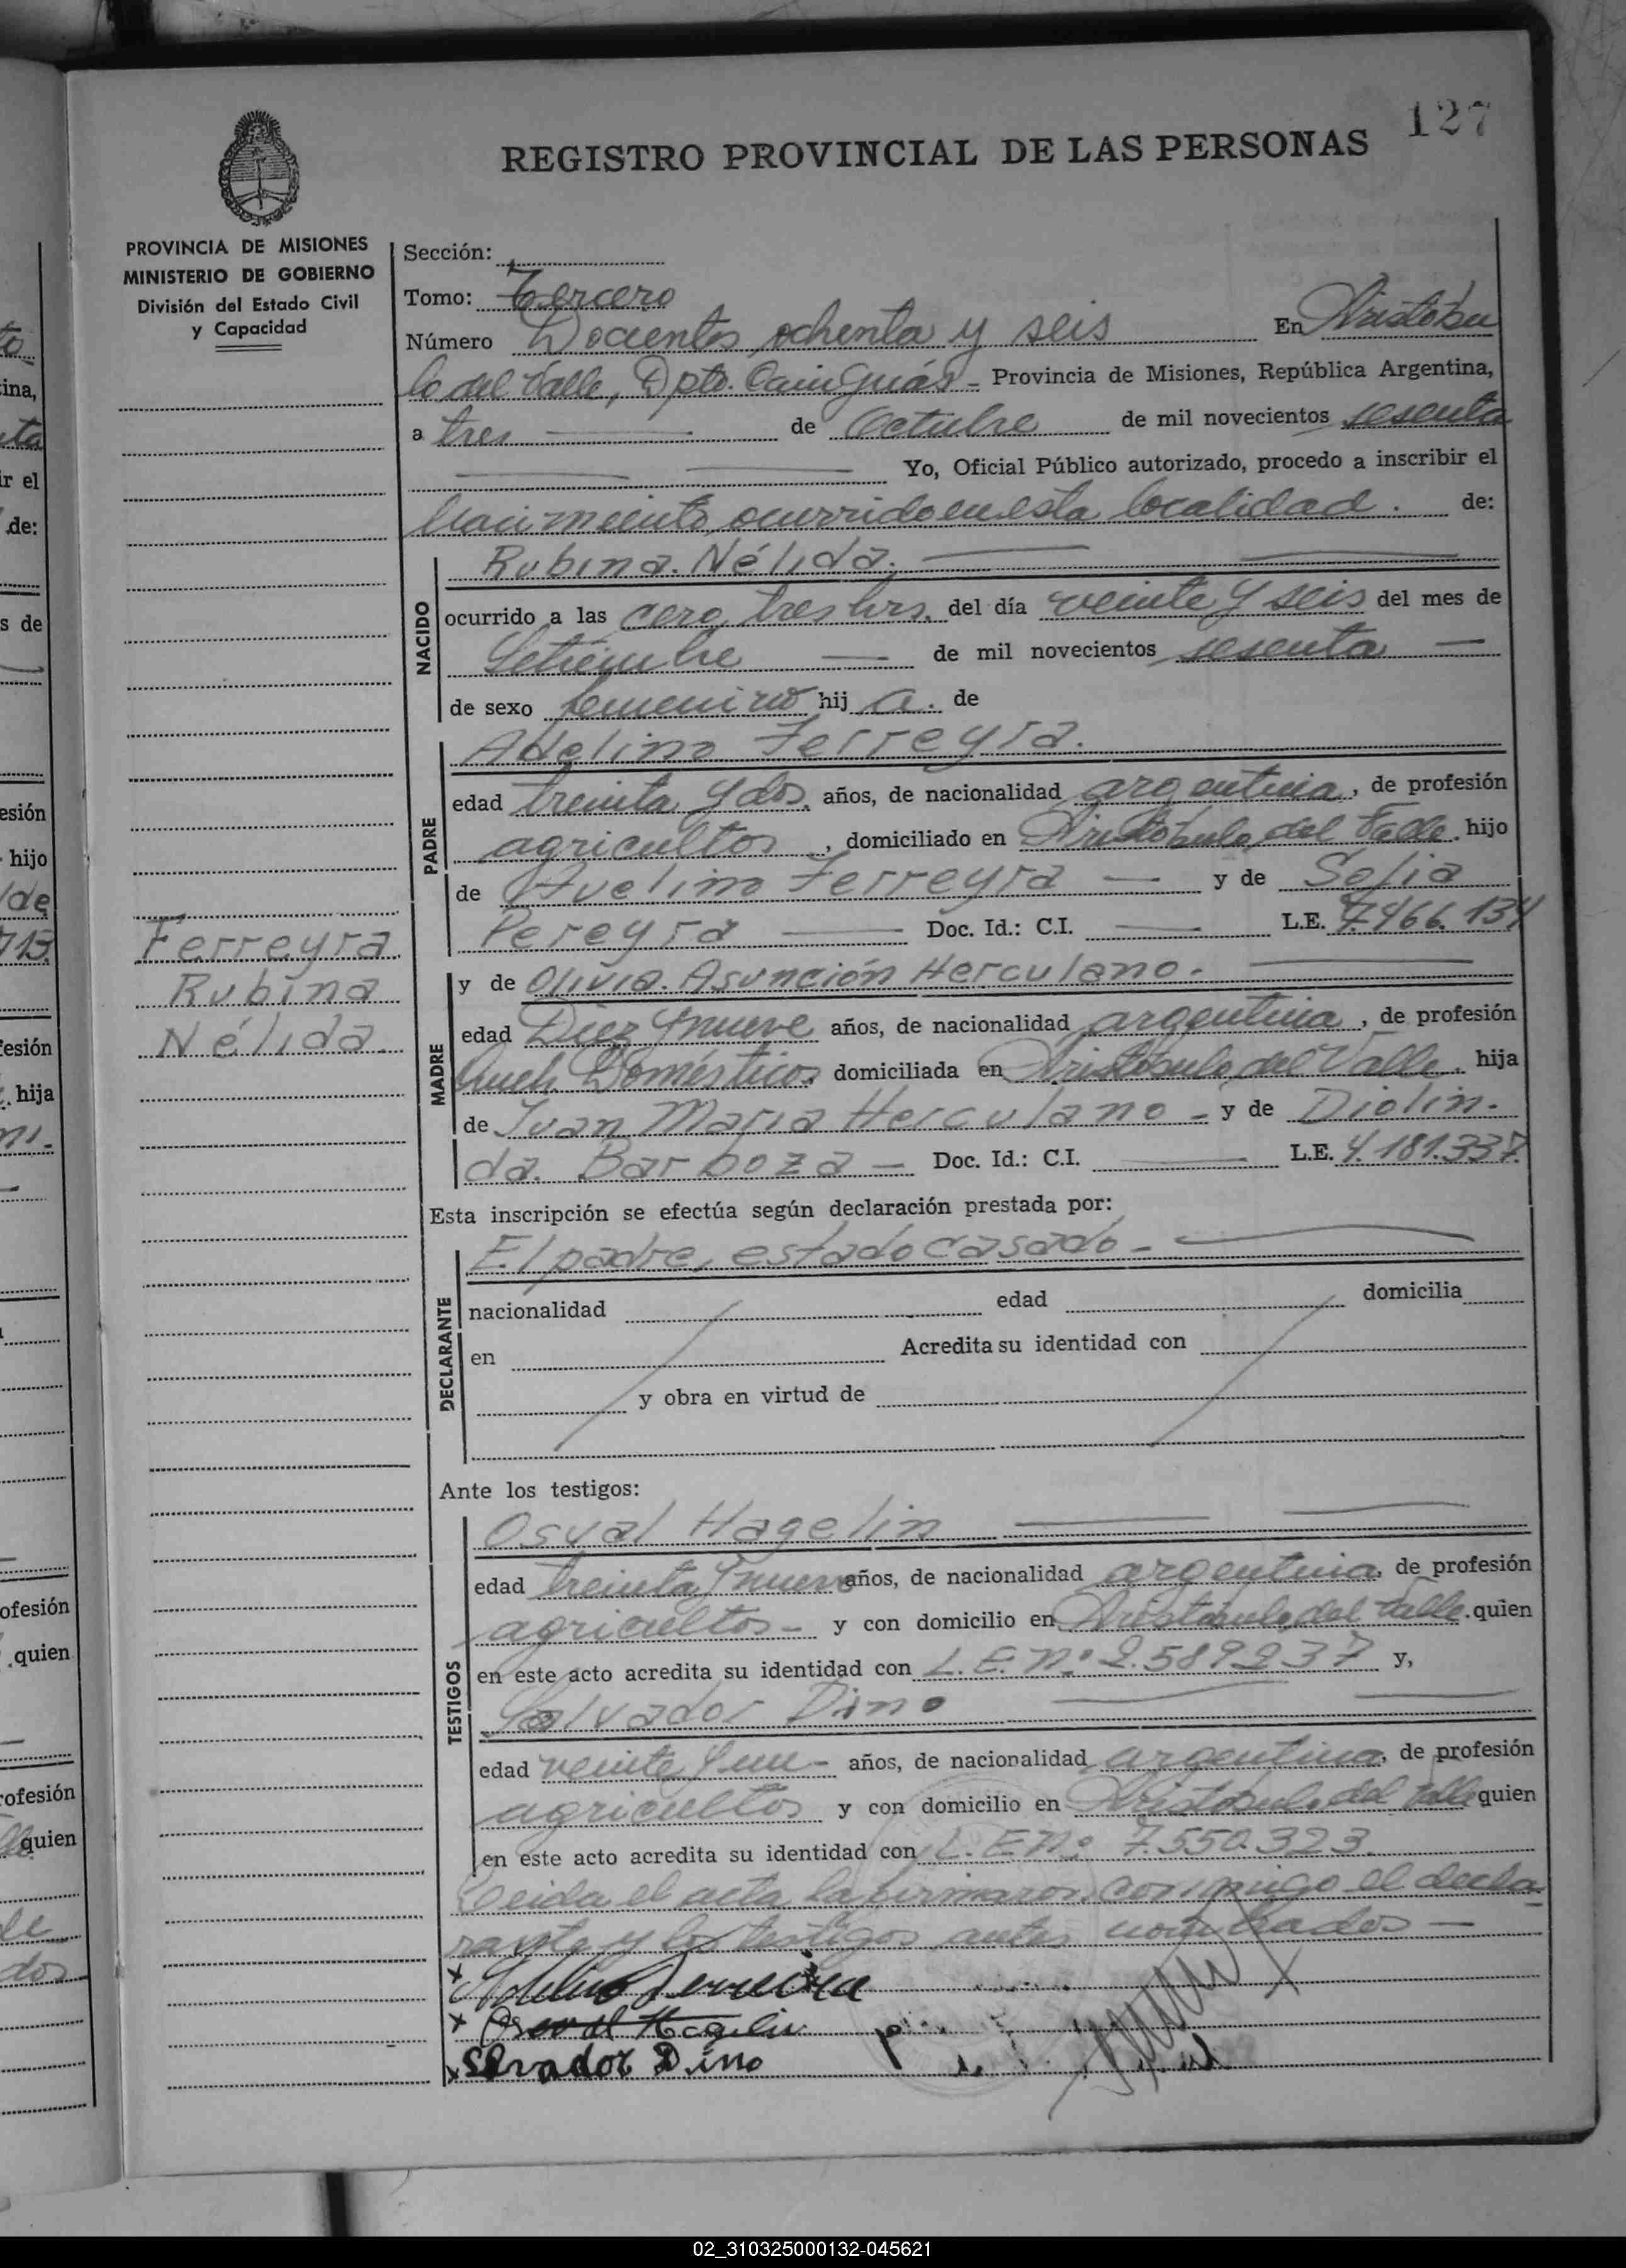 127
REGISTRO PROVINCIAL DE LAS PERSONAS
PROVINCIA DE MISIONES
MINISTERIO DE GOBIERNO
División del Estado Civil
y Capacidad
Sección:
Tomo: Tercero
Número Docientos ochenta y seis En Aristobu
lo del Valle, Dpto. Cainguás - Provincia de Misiones, República Argentina,
a tres de Octubre de mil novecientos sesenta
Yo, Oficial Público autorizado, procedo a inscribir el
Nacimiento ocurrido en esta localidad. de:
NACIDO
Rubina. Nélida.
ocurrido a las cero tres hrs. del día veinte y seis del mes de
Setiembre de mil novecientos sesenta
de sexo femenino hij a. de
PADRE
Adelino Ferreyra.
edad treinta y dos, años, de nacionalidad argentina, de profesión
agricultor, domiciliado en Aristóbulo del Valle. hijo
de Avelino Ferreyra y de Sofia
Pereyra Doc. Id.: C.I. L.E. 7.466.134
Ferreyra
Rubina
Nélida.
MADRE
y de Olivia. Asunción Herculano.
edad Diez y nueve años, de nacionalidad argentina, de profesión
Queh. Domésticos domiciliada en Aristóbulo del Valle. hija
de Juan Maria Herculano - y de Diolin.
da. Barboza - Doc. Id.: C.I. L.E. 4.181.337.
Esta inscripción se efectúa según declaración prestada por:
DECLARANTE
El padre, estado casado -
nacionalidad edad domicilia
en Acredita su identidad con
y obra en virtud de
Ante los testigos:
TESTIGOS
Osval Hagelin
edad treinta y nueve años, de nacionalidad argentina, de profesión
agricultor - y con domicilio en Aristóbulo del Valle. quien
en este acto acredita su identidad con L.E. Nº 2.589237 y,
Salvador Dino
edad veinte y un - años, de nacionalidad argentina, de profesión
agricultor y con domicilio en Aristóbulo del Valle quien
en este acto acredita su identidad con L.E Nº: 7.550.323.
Leida el acta la firmaron conmigo el decla
rante y los testigos antes nombrados -
x Adelino Ferreira
x Osvald Hagelin
x Salvador Dino
02_310325000132-045621